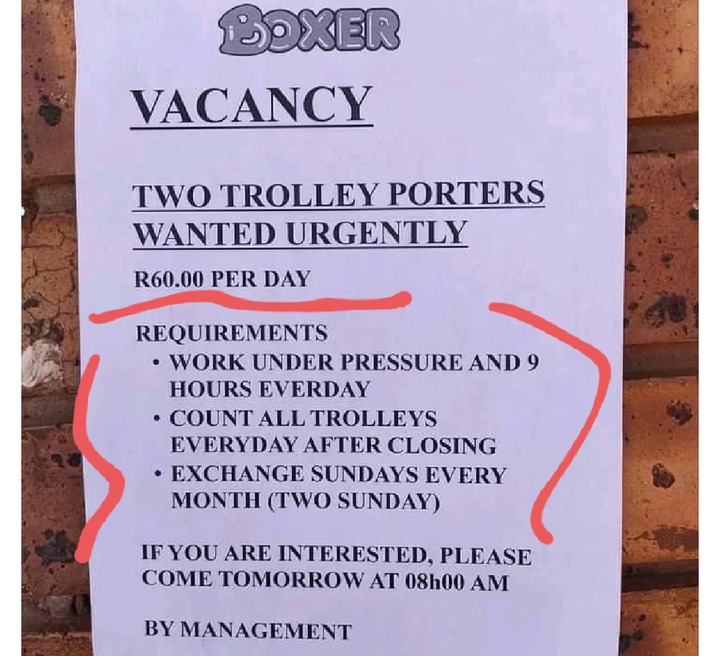 BOXER
VACANCY
TWO TROLLEY PORTERS
WANTED URGENTLY
R60.00 PER DAY
REQUIREMENTS
• WORK UNDER PRESSURE AND 9
HOURS EVERDAY
• COUNT ALL TROLLEYS
EVERYDAY AFTER CLOSING
• EXCHANGE SUNDAYS EVERY
MONTH (TWO SUNDAY)
IF YOU ARE INTERESTED, PLEASE
COME TOMORROW AT 08h00 AM
BY MANAGEMENT